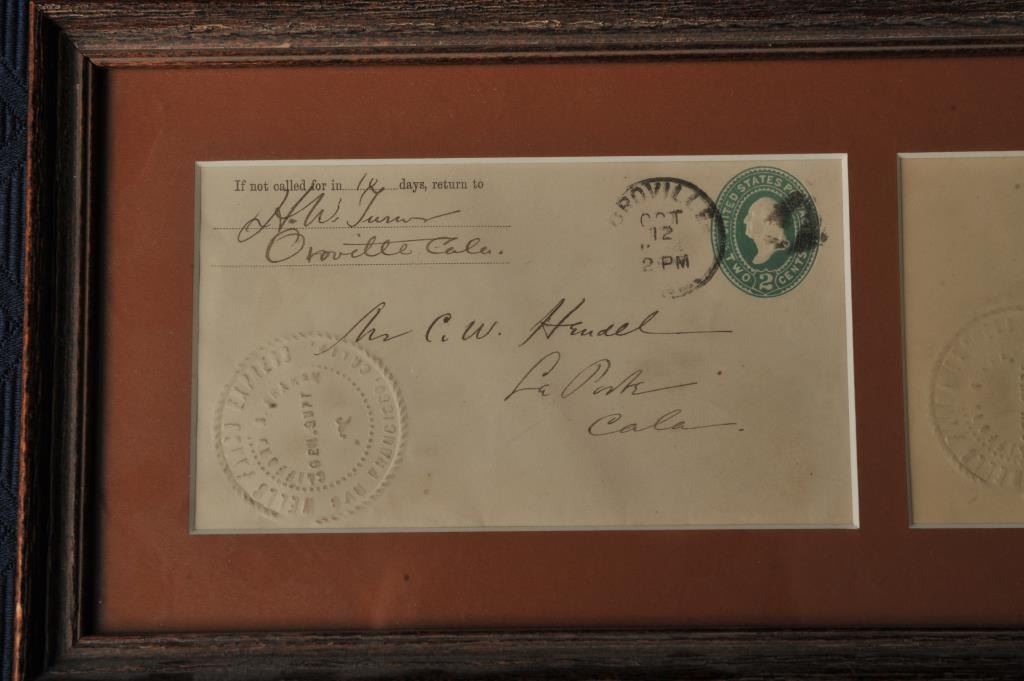 If not called for in 10 days, return to
H. W. Turner
Oroville Cala.
OROVILLE
OCT
12
2 PM
UNITED STATES
TWO 2 CENTS
Mr C. W. Hendel
La Porte
Cala.
WELLS FARGO EXPRESS
SAN FRANCISCO, CAL.
GEN. SUPT